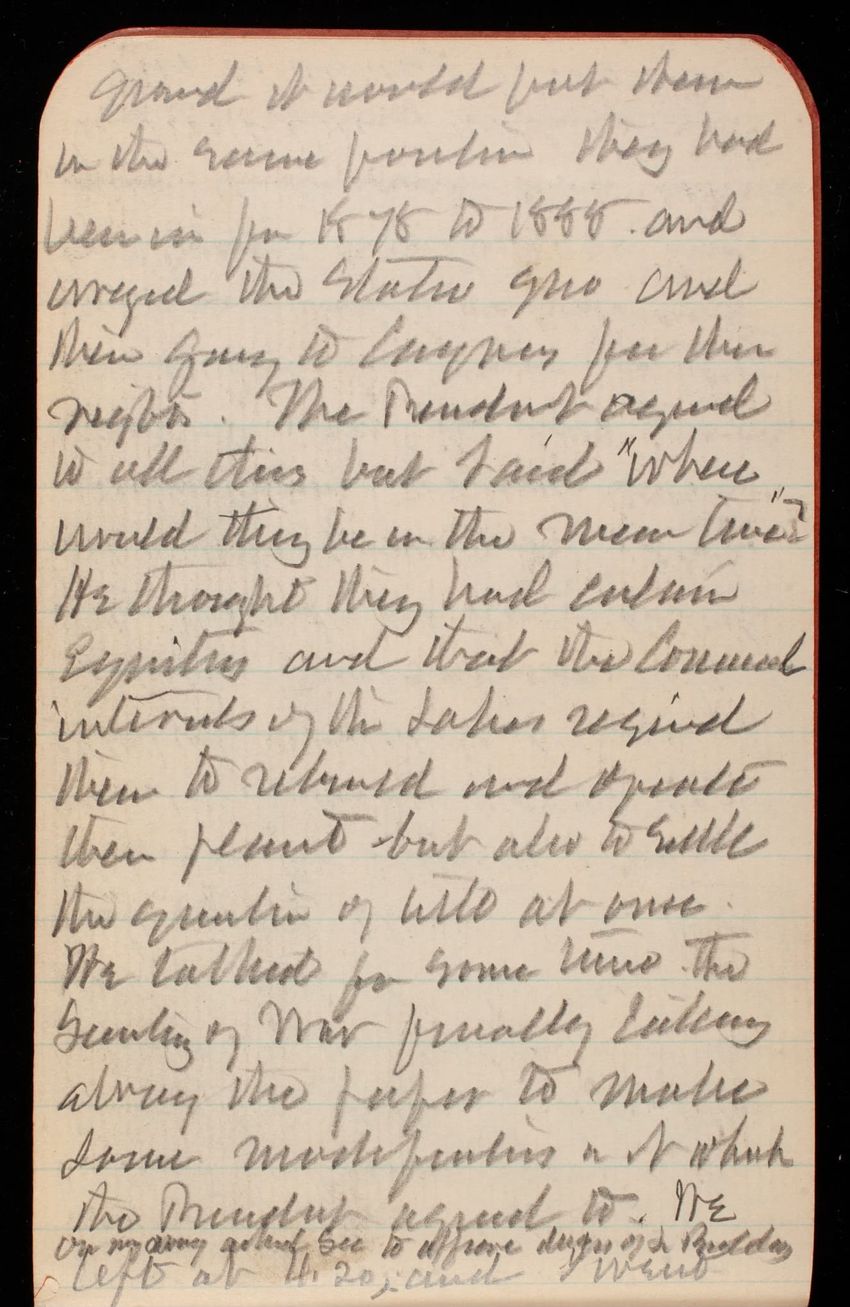 Grand it would put them
in the same position they had
been in for 1878 to 1888. and
urged the Status Quo and
their going to Congress for their
rights. The President agreed
to all this but said "Where
would they be in the mean time"?
He thought they had certain
Equities and that the Commercial
interests of the Lakes required
them to rebuild and operate
their plant but also to settle
the question of title at once.
We talked for some time the
Secretary of War finally taking
along the paper to make
some modifications in it which
the President agreed to. We
on my way asked Sec to approve design of Buildings
left at 4.20, and I went